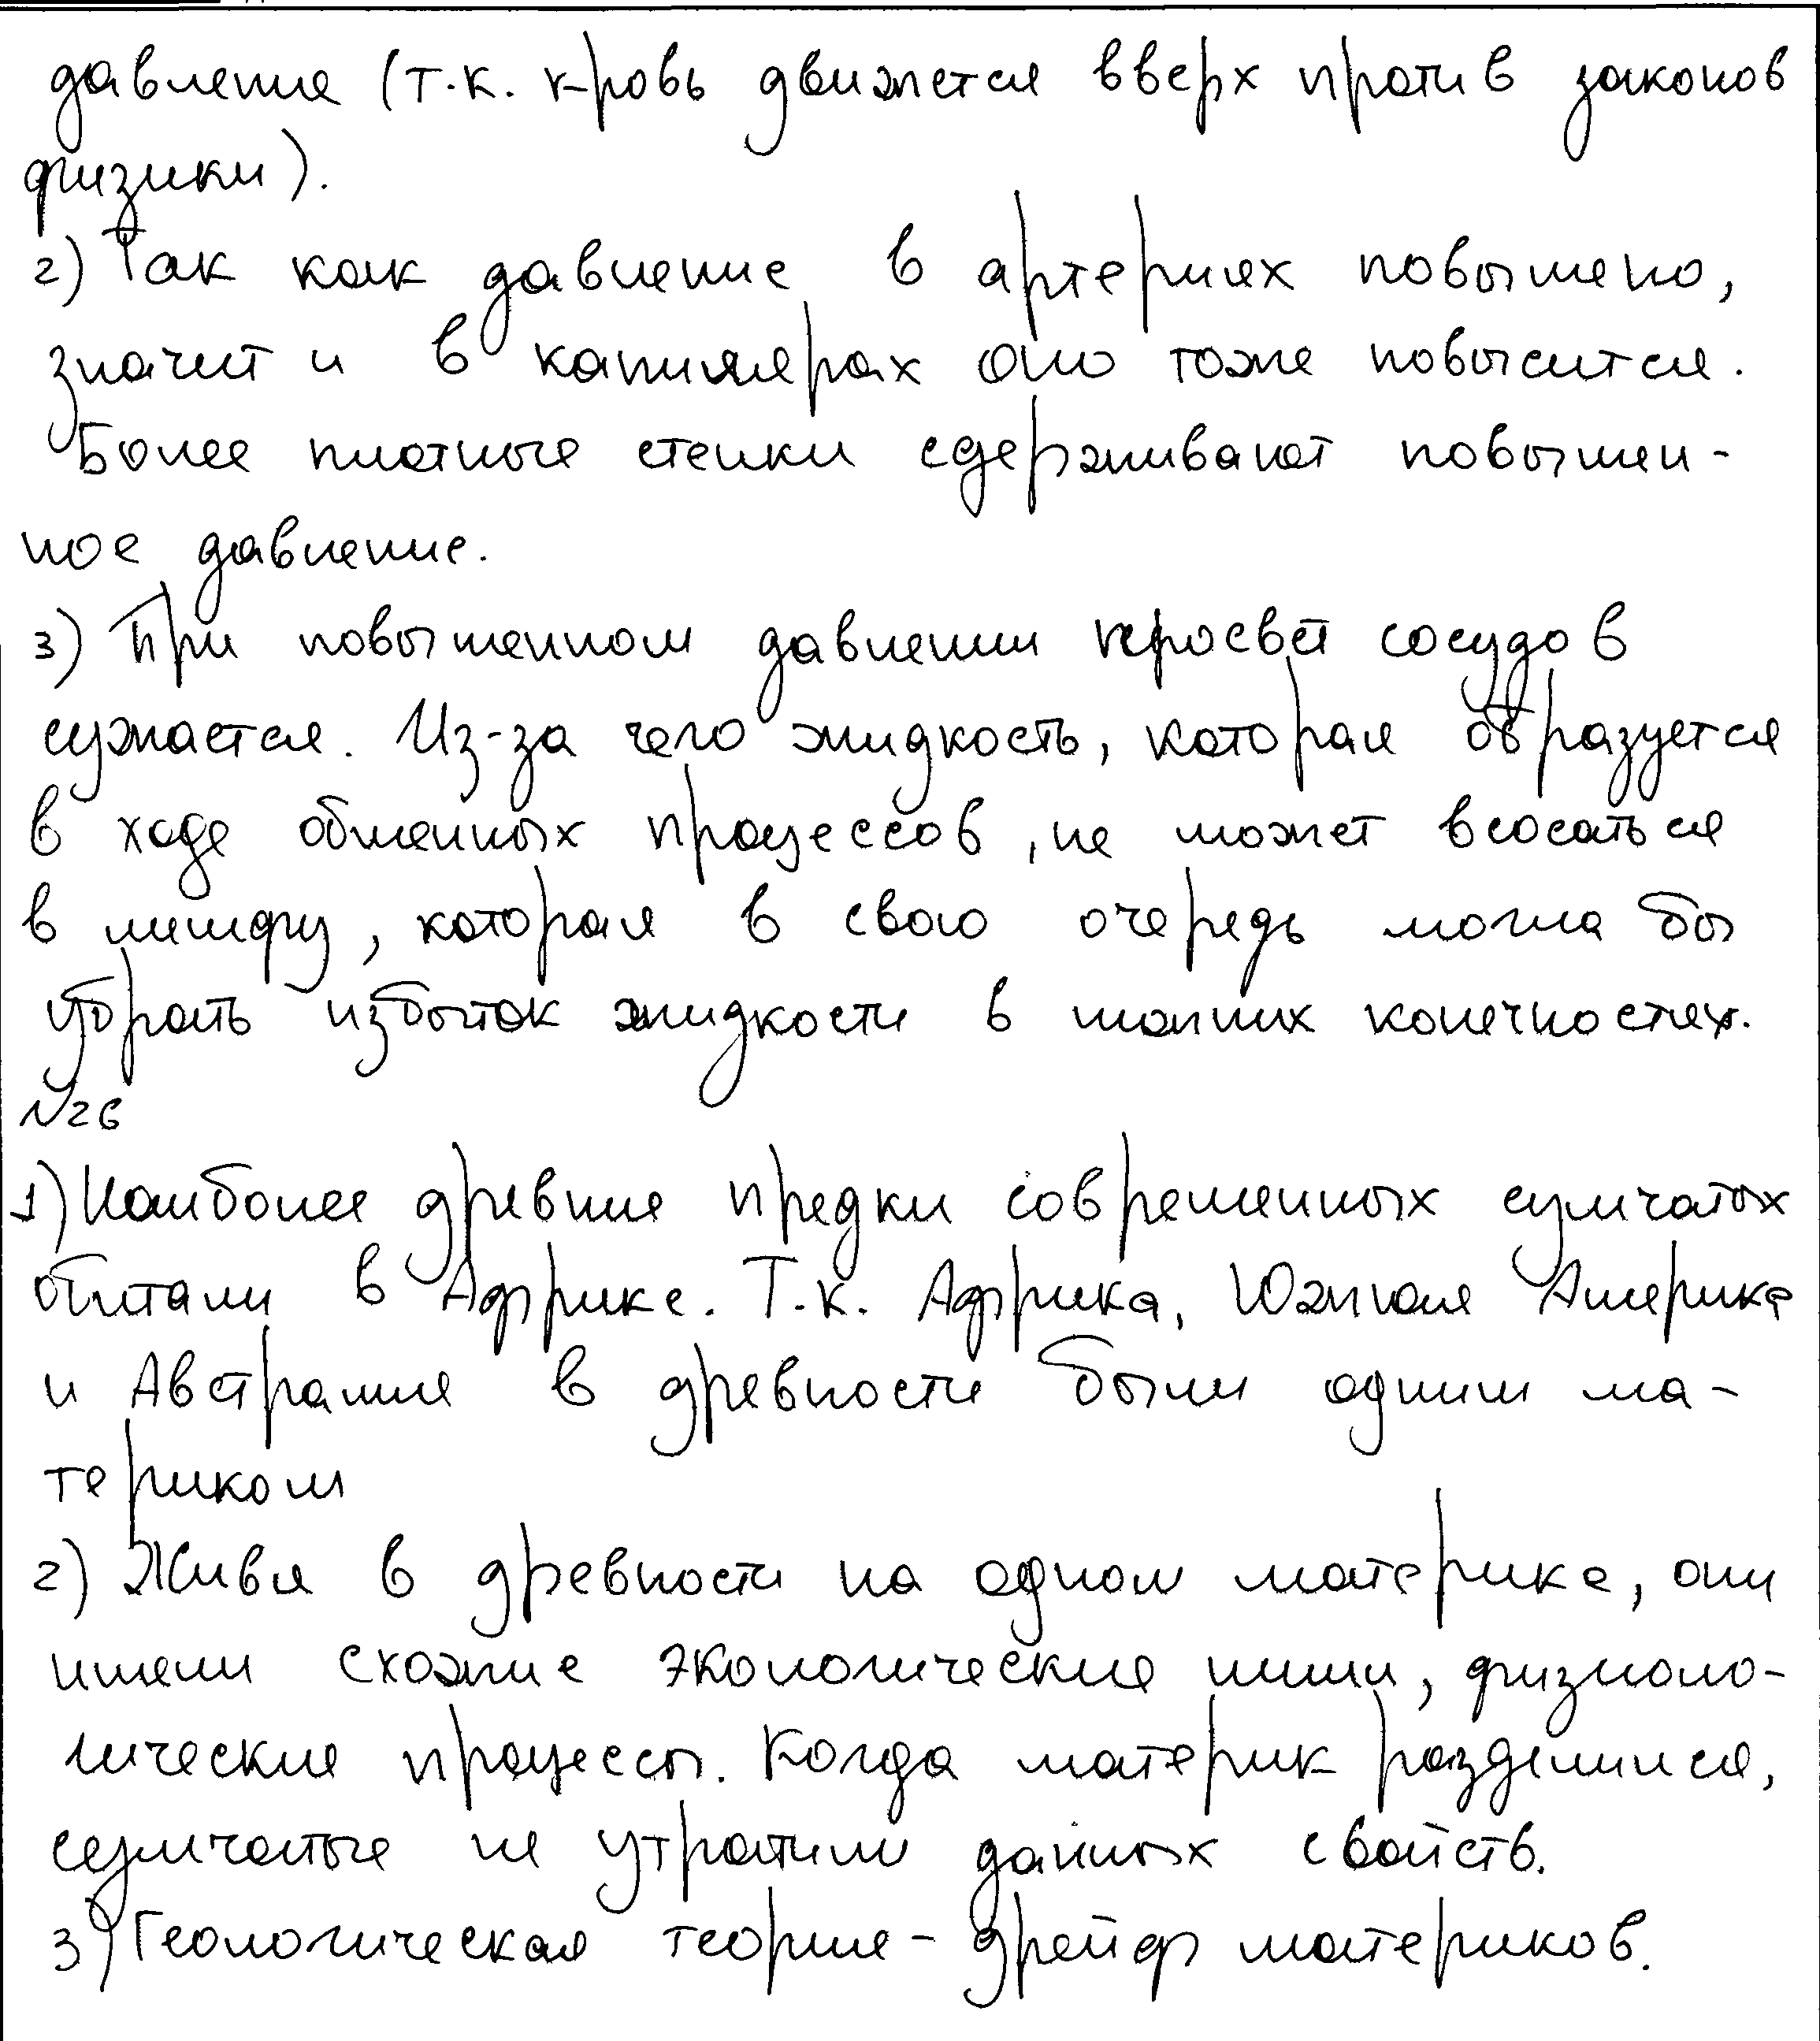 давление (т.к. кровь движется вверх против законов
физики).
2) Так как давление в артериях повышено,
значит и в капиллярах оно тоже повысится.
Более плотные стенки сдерживают повышен-
ное давление.
3) При повышенном давлении просвет сосудов
сужается. Из-за чего жидкость, которая образуется
в ходе обменных процессов, не может всосаться
в лимфу, которая в свою очередь могла бы
убрать избыток жидкости в конечностях.
№26
1) Наиболее древние предки современных сумчатых
обитали в Африке. Т.к. Африка, Южная Америка
и Австралия в древности были одним ма-
териком
2) Живя в древности на одном материке, они
имели схожие экологические ниши, физиоло-
гические процессы. Когда материк разделился,
сумчатые не утратили данных свойств.
3) Геологическая теория - дрейф материков.